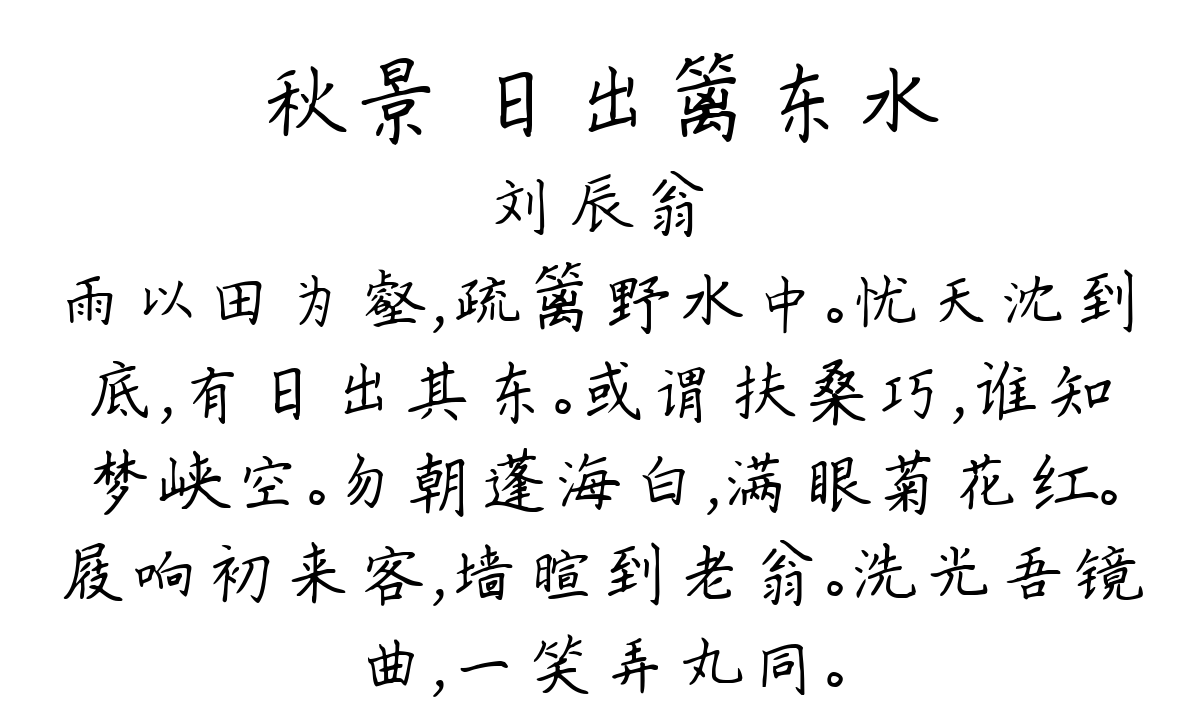 秋景 日出篱东水
刘辰翁
雨以田为壑,疏篱野水中。忧天沈到
底,有日出其东。或谓扶桑巧,谁知
梦峡空。勿朝蓬海白,满眼菊花红。
屐响初来客,墙暄到老翁。洗光吾镜
曲,一笑弄丸同。